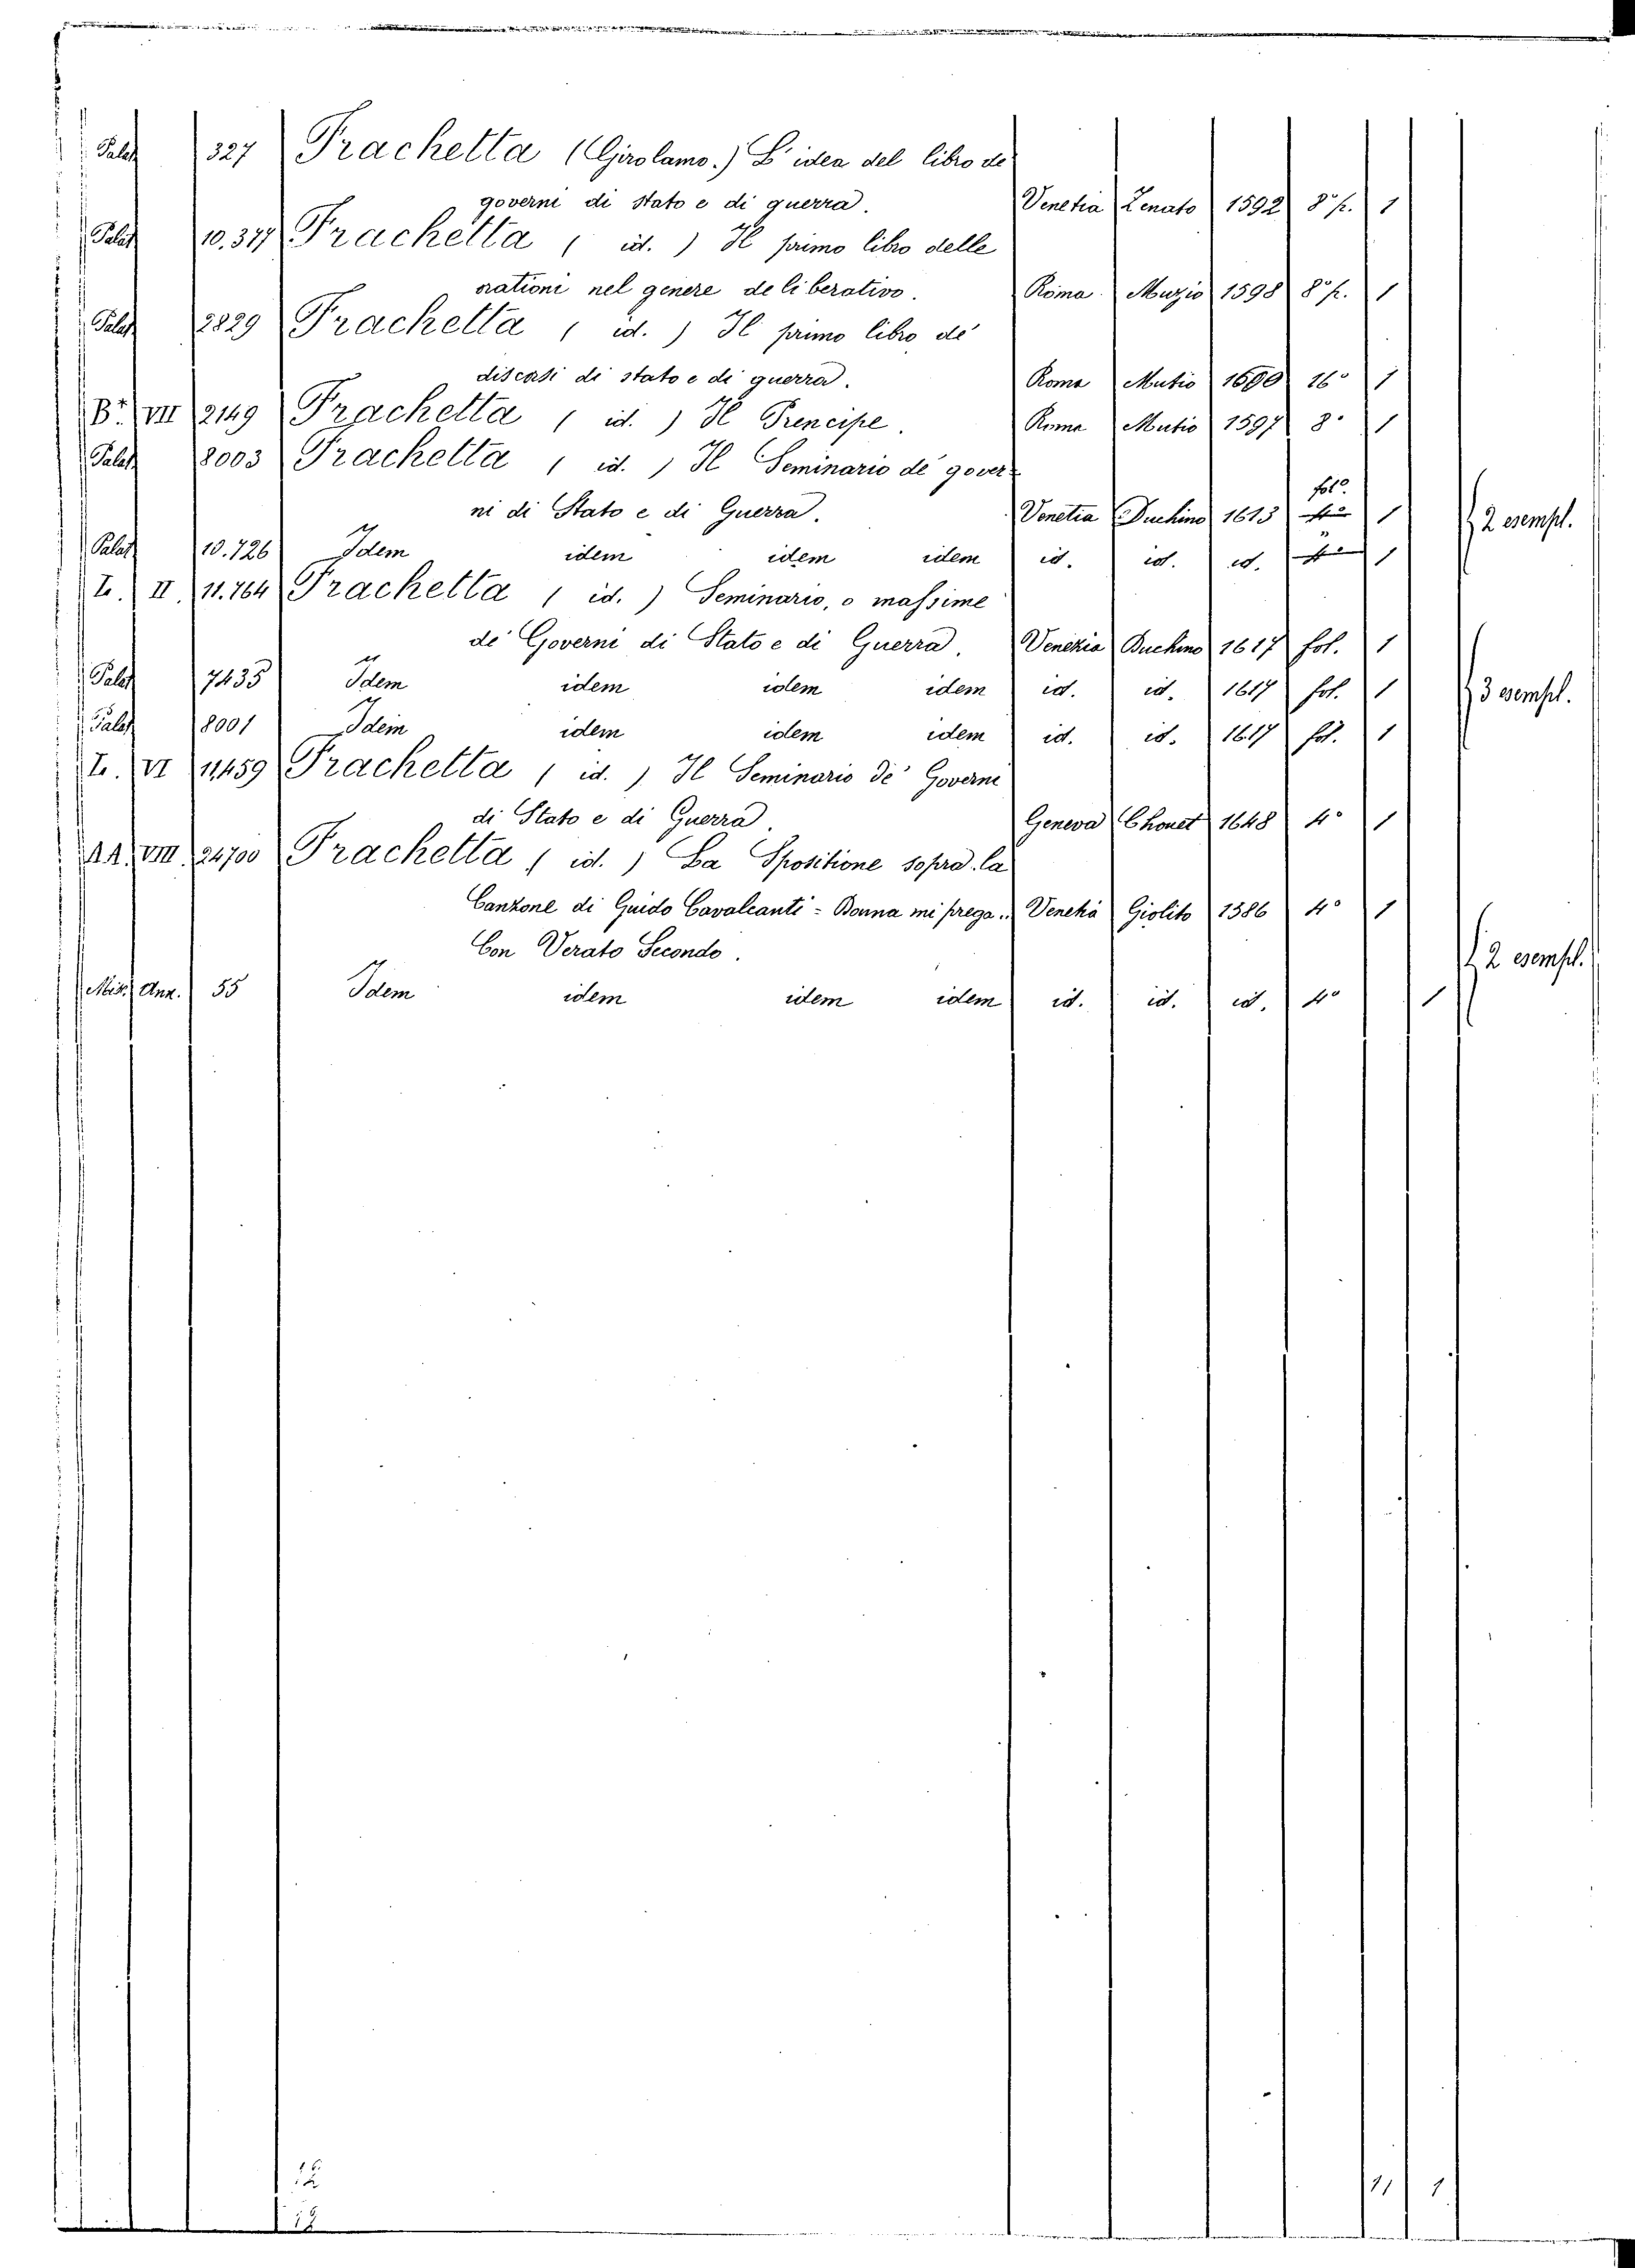 Palat 327 Frachetta (Girolamo.) L'idea del libro de
governi di stato e di guerra. Venetia Zenato 1592 8° p. 1
Palat 10.377 Frachetta ( id. ) Il primo libro delle
orationi nel genere deliberativo. Roma Muzio 1598 8° p. 1
Palat 2829 Frachetta ( id. ) Il primo libro de'
discorsi di stato e di guerra. Roma Mutio 1600 16° 1
B.ª VII 2149 Frachetta ( id. ) Il Prencipe. Roma Mutio 1597 8° 1
Palat 8003 Frachetta ( id. ) Il Seminario de' gover-
ni di Stato e di Guerra. Venetia Duchino 1613 fol.° 1 2 esempl.
Palat 10.726 Idem idem idem idem id. id. id. " 1
L. II 11.764 Frachetta ( id. ) Seminario, o massime
de' Governi di Stato e di Guerra. Venezia Duchino 1617 fol. 1
Palat 7435 Idem idem idem idem id. id. 1617 fol. 1 3 esempl.
Palat 8001 Idem idem idem idem id. id. 1617 fol. 1
L. VI 11.459 Frachetta ( id. ) Il Seminario de' Governi
di Stato e di Guerra. Geneva Chouet 1648 4° 1
AA. VIII. 24700 Frachetta ( id. ) La Spositione sopra la
Canzone di Guido Cavalcanti = Donna mi prega.. Venetia Giolito 1586 4° 1
Con Verato Secondo. 2 esempl.
Misc. Ann. 55 Idem idem idem idem id. id. id. 4° 1
12 11 1
12